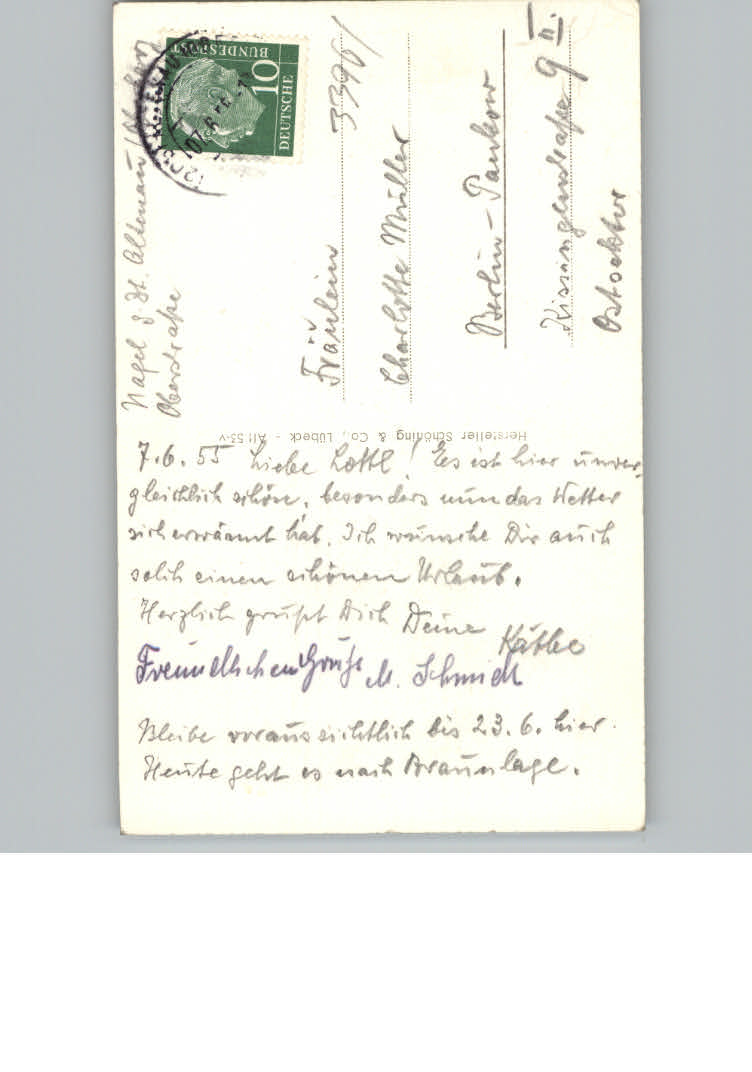 7.6.55 Liebe Lottl! Es ist hier unver-
gleichlich schön, besonders nun das Wetter
sich erwärmt hat. Ich wünsche Dir auch
solch einen schönen Urlaub.
Herzlich grüßt Dich Deine Käthe
Freundlichen Gruß M. Schmidt
Bleibe voraussichtlich bis 23.6. hier.
Heute geht es nach Braunlage.
Hersteller Schöning & Co., Lübeck
Nagel z. Zt. Altenau/
Oberstraße
DEUTSCHE
BUNDESPOST
10
Fräulein
Charlotte Müller
Berlin-Pankow
Kissingenstraße 9 II.
Ostsektor